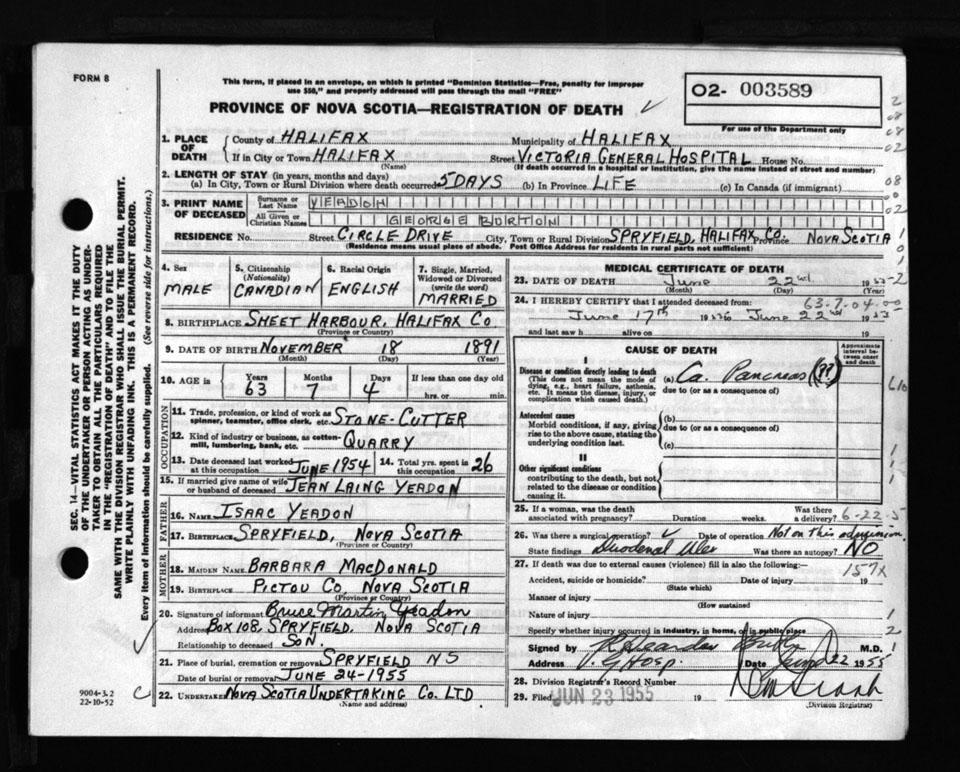 FORM 8
This form, if placed in an envelope, on which is printed "Dominion Statistics—Free, penalty for improper
use $50," and properly addressed will pass through the mail "FREE"
PROVINCE OF NOVA SCOTIA—REGISTRATION OF DEATH
O2- 003589
For use of the Department only
1. PLACE OF DEATH
County of HALIFAX Municipality of HALIFAX
If in City or Town HALIFAX Street VICTORIA GENERAL HOSPITAL House No.
(Name) (If death occurred in a hospital or institution, give the name instead of street and number)
2. LENGTH OF STAY (in years, months and days)
(a) In City, Town or Rural Division where death occurred 5 DAYS (b) In Province LIFE (c) In Canada (if immigrant)
3. PRINT NAME OF DECEASED
Surname or Last Name YEADON
All Given or Christian Names GEORGE BURTON
RESIDENCE No. Street CIRCLE DRIVE City, Town or Rural Division SPRYFIELD, HALIFAX CO. Province NOVA SCOTIA
(Residence means usual place of abode. Post Office Address for residents in rural parts not sufficient)
4. Sex
MALE
5. Citizenship
(Nationality)
CANADIAN
6. Racial Origin
ENGLISH
7. Single, Married,
Widowed or Divorced
(write the word)
MARRIED
8. BIRTHPLACE SHEET HARBOUR, HALIFAX CO
(Province or Country)
9. DATE OF BIRTH NOVEMBER 18 1891
(Month) (Day) (Year)
10. AGE in
Years Months Days If less than one day old
63 7 4 hrs. or min.
OCCUPATION
11. Trade, profession, or kind of work as
spinner, teamster, office clerk, etc. STONE-CUTTER
12. Kind of industry or business, as cotton-
mill, lumbering, bank, etc. QUARRY
13. Date deceased last worked
at this occupation JUNE 1954
14. Total yrs. spent in
this occupation 26
15. If married give name of wife
or husband of deceased JEAN LAING YEADON
FATHER
16. NAME ISAAC YEADON
17. BIRTHPLACE SPRYFIELD, NOVA SCOTIA
(Province or Country)
MOTHER
18. MAIDEN NAME BARBARA MACDONALD
19. BIRTHPLACE PICTOU CO NOVA SCOTIA
(Province or Country)
20. Signature of informant Bruce Martin Yeadon
Address BOX 108, SPRYFIELD, NOVA SCOTIA
Relationship to deceased SON.
21. Place of burial, cremation or removal SPRYFIELD NS
Date of burial or removal JUNE 24-1955
22. UNDERTAKER NOVA SCOTIA UNDERTAKING CO. LTD
(Name and address)
MEDICAL CERTIFICATE OF DEATH
23. DATE OF DEATH June 22nd 19
(Month) (Day)
24. I HEREBY CERTIFY that I attended deceased from: 63-7-04-00
June 17th 19 to June 22nd 19
and last saw h alive on 19
CAUSE OF DEATH
Approximate
interval be-
tween onset
and death
I
Disease or condition directly leading to death
(This does not mean the mode of
dying, e.g., heart failure, asthenia,
etc. It means the disease, injury, or
complication which caused death.)
(a) Ca. Pancreas (??)
due to (or as a consequence of)
Antecedent causes
Morbid conditions, if any, giving
rise to the above cause, stating the
underlying condition last.
(b)
due to (or as a consequence of)
(c)
II
Other significant conditions
contributing to the death, but not
related to the disease or condition
causing it.
25. If a woman, was the death
associated with pregnancy? Duration weeks. Was there
a delivery? 6-22-5
26. Was there a surgical operation? Date of operation Not on this admission
State findings Duodenal Ulcer Was there an autopsy? NO
27. If death was due to external causes (violence) fill in also the following: 157X
Accident, suicide or homicide? Date of injury 19
(State which)
Manner of injury
(How sustained)
Nature of injury
Specify whether injury occurred in industry, in home, or in public place
Signed by M.D.
Address V. G Hosp. Date June 22 1955
28. Division Registrar's Record Number
29. Filed JUN 23 1955 19
(Division Registrar)
SEC. 14—VITAL STATISTICS ACT MAKES IT THE DUTY
OF THE UNDERTAKER OR PERSON ACTING AS UNDER-
TAKER TO OBTAIN ALL THE PARTICULARS REQUIRED
IN THE "REGISTRATION OF DEATH" AND TO FILE THE
SAME WITH THE DIVISION REGISTRAR WHO SHALL ISSUE THE BURIAL PERMIT.
WRITE PLAINLY WITH UNFADING INK. THIS IS A PERMANENT RECORD.
Every item of information should be carefully supplied. (See reverse side for instructions.)
9004-3.2
22-10-52